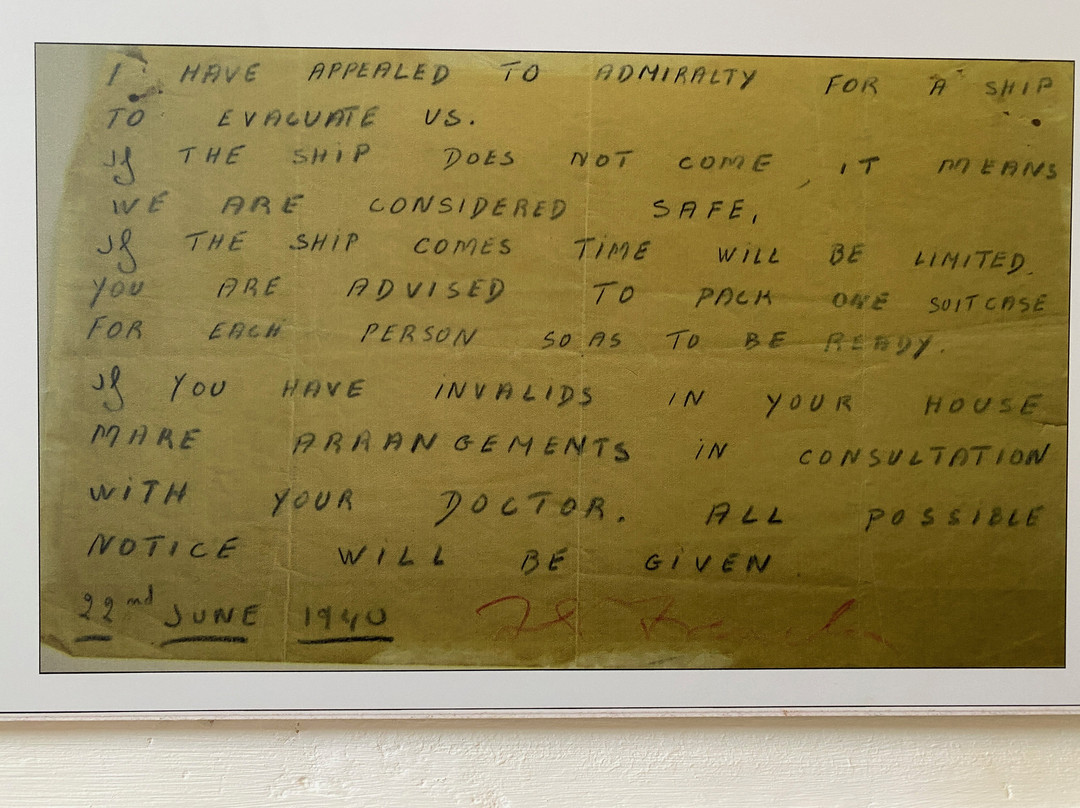 I HAVE APPEALED TO ADMIRALTY FOR A SHIP
TO EVACUATE US.
If THE SHIP DOES NOT COME, IT MEANS
WE ARE CONSIDERED SAFE,
If THE SHIP COMES TIME WILL BE LIMITED.
YOU ARE ADVISED TO PACK ONE SUITCASE
FOR EACH PERSON SO AS TO BE READY.
If YOU HAVE INVALIDS IN YOUR HOUSE
MAKE ARRANGEMENTS IN CONSULTATION
WITH YOUR DOCTOR. ALL POSSIBLE
NOTICE WILL BE GIVEN
22nd JUNE 1940